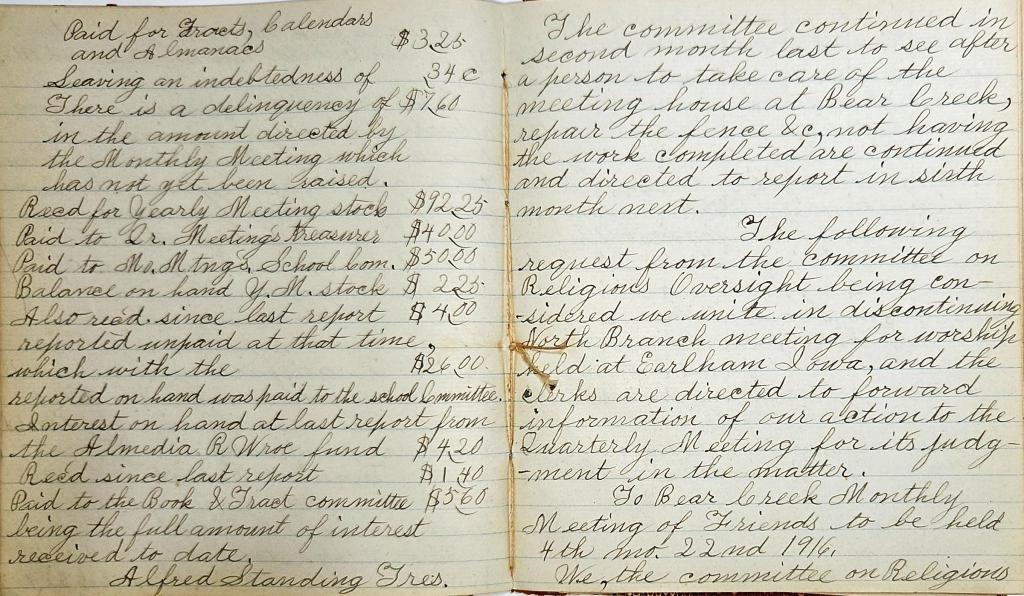 Paid for Tracts, Calendars
and Almanacs $3.25
Leaving an indebtedness of 34c
There is a delinquency of $7.60
in the amount directed by
the Monthly Meeting which
has not yet been raised.
Recd for Yearly Meeting stock $92.25
Paid to Qr. Meetings Treasurer $40.00
Paid to Mo. Mtngs. School Com. $50.00
Balance on hand Y. M. stock $ 2.25
Also recd. since last report $ 4.00
reported unpaid at that time,
which with the $26.00.
reported on hand was paid to the school Committee.
Interest on hand at last report from
the Almedia R Wroe fund $4.20
Recd since last report $1.40
Paid to the Book & Tract committee $5.60
being the full amount of interest
received to date,
Alfred Standing Tres.
The committee continued in
second month last to see after
a person to take care of the
meeting house at Bear Creek,
repair the fence &c, not having
the work completed are continued
and directed to report in sixth
month next.
The following
request from the committee on
Religious Oversight being con-
-sidered we unite in discontinuing
North Branch meeting for worship
held at Earlham Iowa, and the
clerks are directed to forward
information of our action to the
Quarterly Meeting for its judg-
-ment in the matter.
To Bear Creek Monthly
Meeting of Friends to be held
4th mo. 22nd 1916.
We, the committee on Religious